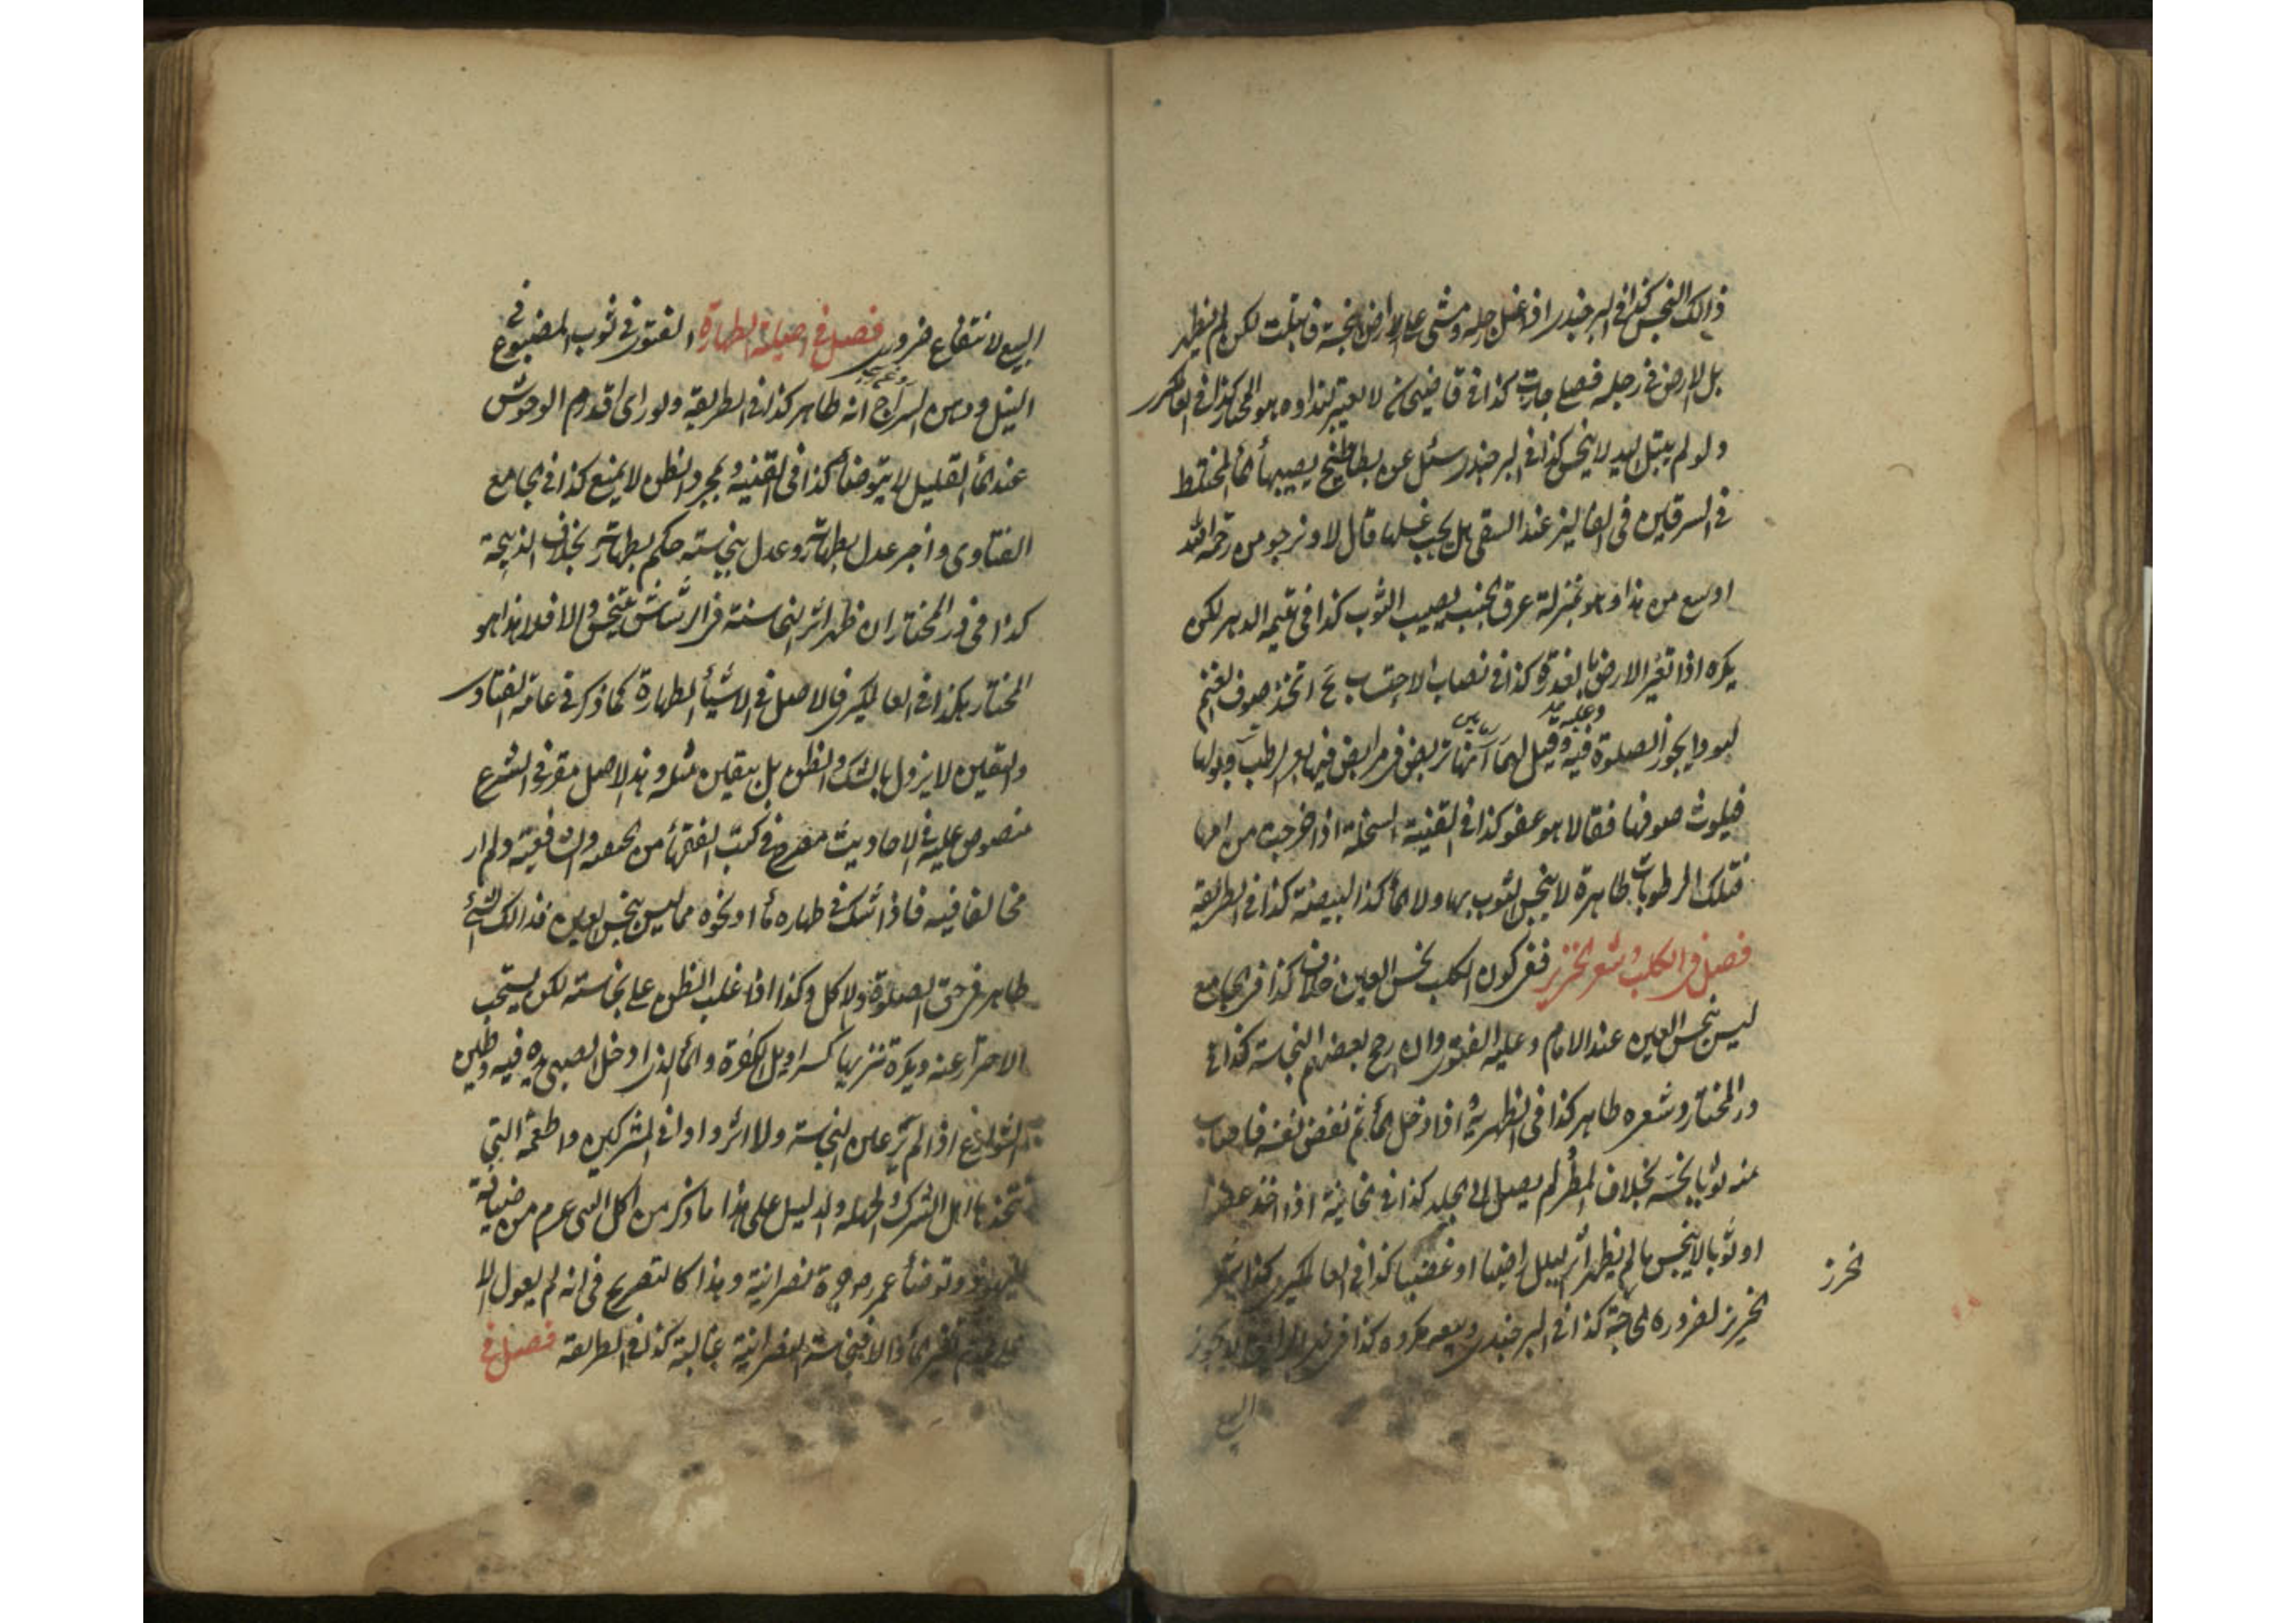 ذالك النجس كذا في البرجندي اذا غسل رجله ومشى على ارض نجسة فابتلت لكن لم يظهر
بل الارض في رجله فصلى جازت كذا في قاضيخان لا يعتبر نداوه هو المختار كذا في
ولو لم يبتل اليد لا ينجس كذا في البرجندي سئل عن بطاطيخ يصيبها الماء المختلط
في السرقين في الفاليز عند السقي هل يجب غسلها قال لا ونرجو من رحمة الله
اوسع من هذا وهو بمنزلة عرق الجنب يصيب الثوب كذا في يتيمة الدهر لكن
يكره اذا تغير الارض بالعذرة كذا في نصاب الاحتساب اتخذ صوف الغنم
لبودا يجوز الصلوة فيه وقيل لهما انها تربض في مرابض فيها بعر الرطب وبولها
فيلوث صوفها فقالا هو عفو كذا في القنية السخلة اذا خرجت من امها
فتلك الرطوبات طاهرة لا ينجس الثوب بها ولا الماء كذا البيضة كذا في الطريقة
فصل في الكلب وشعر الخنزير ففي كون الكلب نجس العين خلاف كذا في الجامع
ليس بنجس العين عند الامام وعليه الفتوى وان رجح بعضهم النجاسة كذا في
در المختار وشعره طاهر كذا في الظهيرية اذا دخل الماء ثم نفض نفسه فاصاب
منه ثوبا نجسه بخلاف المطر لم يصل الى الجلد كذا في الخانية اذا اخذ عضوا
او ثوبا لا ينجس ما لم يظهر اثر البلل راضيا او غضبا كذا في العالمكيري
الخرز
الخنزير لضروره الحاجة كذا في البرجندي وبيعه مكروه كذا في
البيع
البيع لا نتفاع ضروري فصل في اصلية الطهارة الفتوى في ثوب المصبوغ في
النيل ودهن السراج انه طاهر كذا في الطريقة ولو راى اقدام الوحوش
عند الماء القليل لا يتوضأ كذا في القنية وبمجرد الظن لا يمنع كذا في جامع
الفتاوى واخبر عدل بطهارته وعدل بنجاسته حكم بطهارته بخلاف الذبيحة
كذا في در المختار ان ظهر اثر النجاسة في الرشاش يتنجس والا فلا هذا هو
المختار هكذا في العالمكيري فالاصل في الاشياء الطهارة كما ذكر في عامة الفتاوى
واليقين لا يزول بالشك والظن بل بيقين مثله وهذا الاصل مقرر في الشرع
منصوص عليه في الاحاديث مصرح في كتب الفقهاء من الحنفية والشافعية ولم ار
مخالفا فيه فاذا شك في طهاره ماء او نحوه مما ليس بنجس العين فذالك الشئ
طاهر في حق الصلوة والاكل وكذا اذا غلب الظن على نجاسته لكن يستحب
الاحتراز عنه ويكره تنزيها كسراويل الكفرة والماء الذى ادخل الصبي يده فيه وطين
الشوارع اذا لم ير عين النجاسة ولا اثره واواني المشركين واطعمة التي
تتخذها اهل الشرك والجهلة والدليل على هذا ما ذكر من اكل النبي عم من ضيافة
اليهودي وتوضأ عمر من جرة نصرانية وهذا كالتصريح في انه لم يعول الا
على عدم تغير الماء والا فنجاسة النصرانية غالبة كذا في الطريقة فصل في